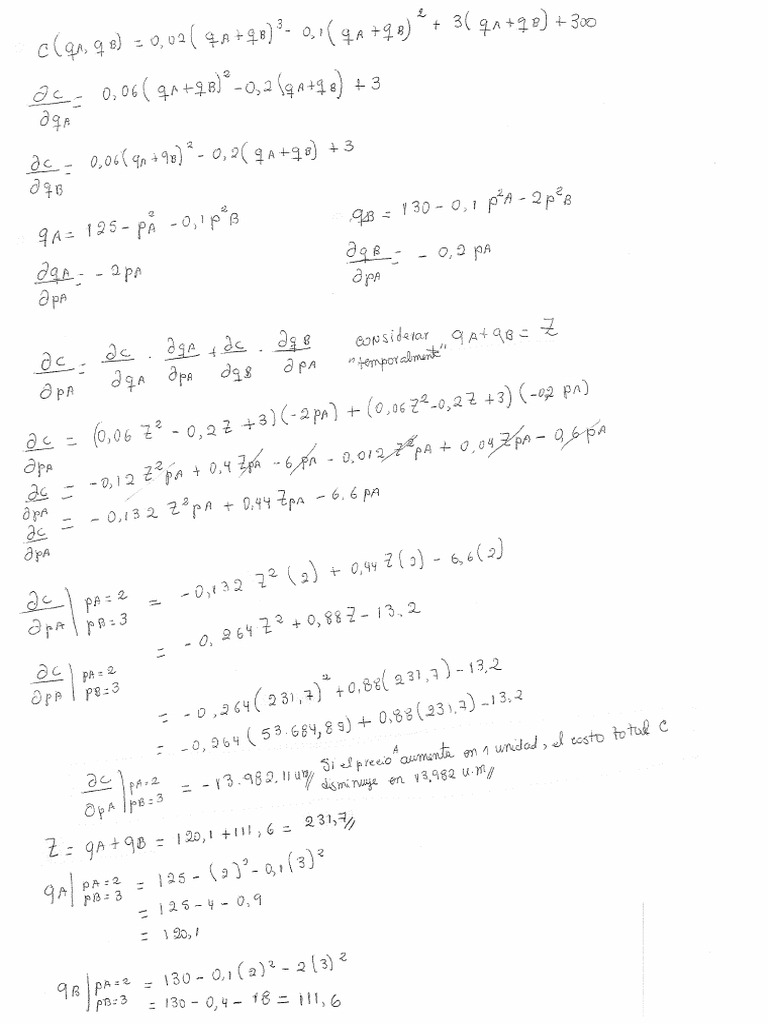 C(qA, qB) = 0,02(qA+qB)³ - 0,1(qA+qB)² + 3(qA+qB) + 300
∂C/∂qA = 0,06(qA+qB)² - 0,2(qA+qB) + 3
∂C/∂qB = 0,06(qA+qB)² - 0,2(qA+qB) + 3
qA = 125 - p²A - 0,1p²B qB = 130 - 0,1 p²A - 2p²B
∂qA/∂pA = - 2pA ∂qB/∂pA = - 0,2 pA
∂C/∂pA = ∂C/∂qA · ∂qA/∂pA + ∂C/∂qB · ∂qB/∂pA considerar "temporalmente" qA+qB = Z
∂C/∂pA = (0,06 Z² - 0,2Z + 3)(-2pA) + (0,06Z² - 0,2Z + 3)(-0,2 pA)
∂C/∂pA = -0,12 Z²pA + 0,4 ZpA - 6pA - 0,012 Z²pA + 0,04 ZpA - 0,6 pA
∂C/∂pA = - 0,132 Z²pA + 0,44 ZpA - 6.6 pA
∂C/∂pA | pA=2 pB=3 = -0,132 Z²(2) + 0,44 Z(2) - 6,6(2)
= - 0,264 Z² + 0,88Z - 13.2
∂C/∂pA | pA=2 pB=3
= -0,264(231,7)² + 0,88(231,7) - 13,2
= -0,264(53.684,89) + 0,88(231,7) - 13,2
∂C/∂pA | pA=2 pB=3 = -13.982,11 um// Si el precio A aumenta en 1 unidad, el costo total C
disminuye en 13.982 u.m//
Z = qA+qB = 120,1 + 111,6 = 231,7//
qA | pA=2 pB=3 = 125 - (2)² - 0,1(3)²
= 125 - 4 - 0,9
= 120,1
qB | pA=2 pB=3 = 130 - 0,1(2)² - 2(3)²
= 130 - 0,4 - 18 = 111,6